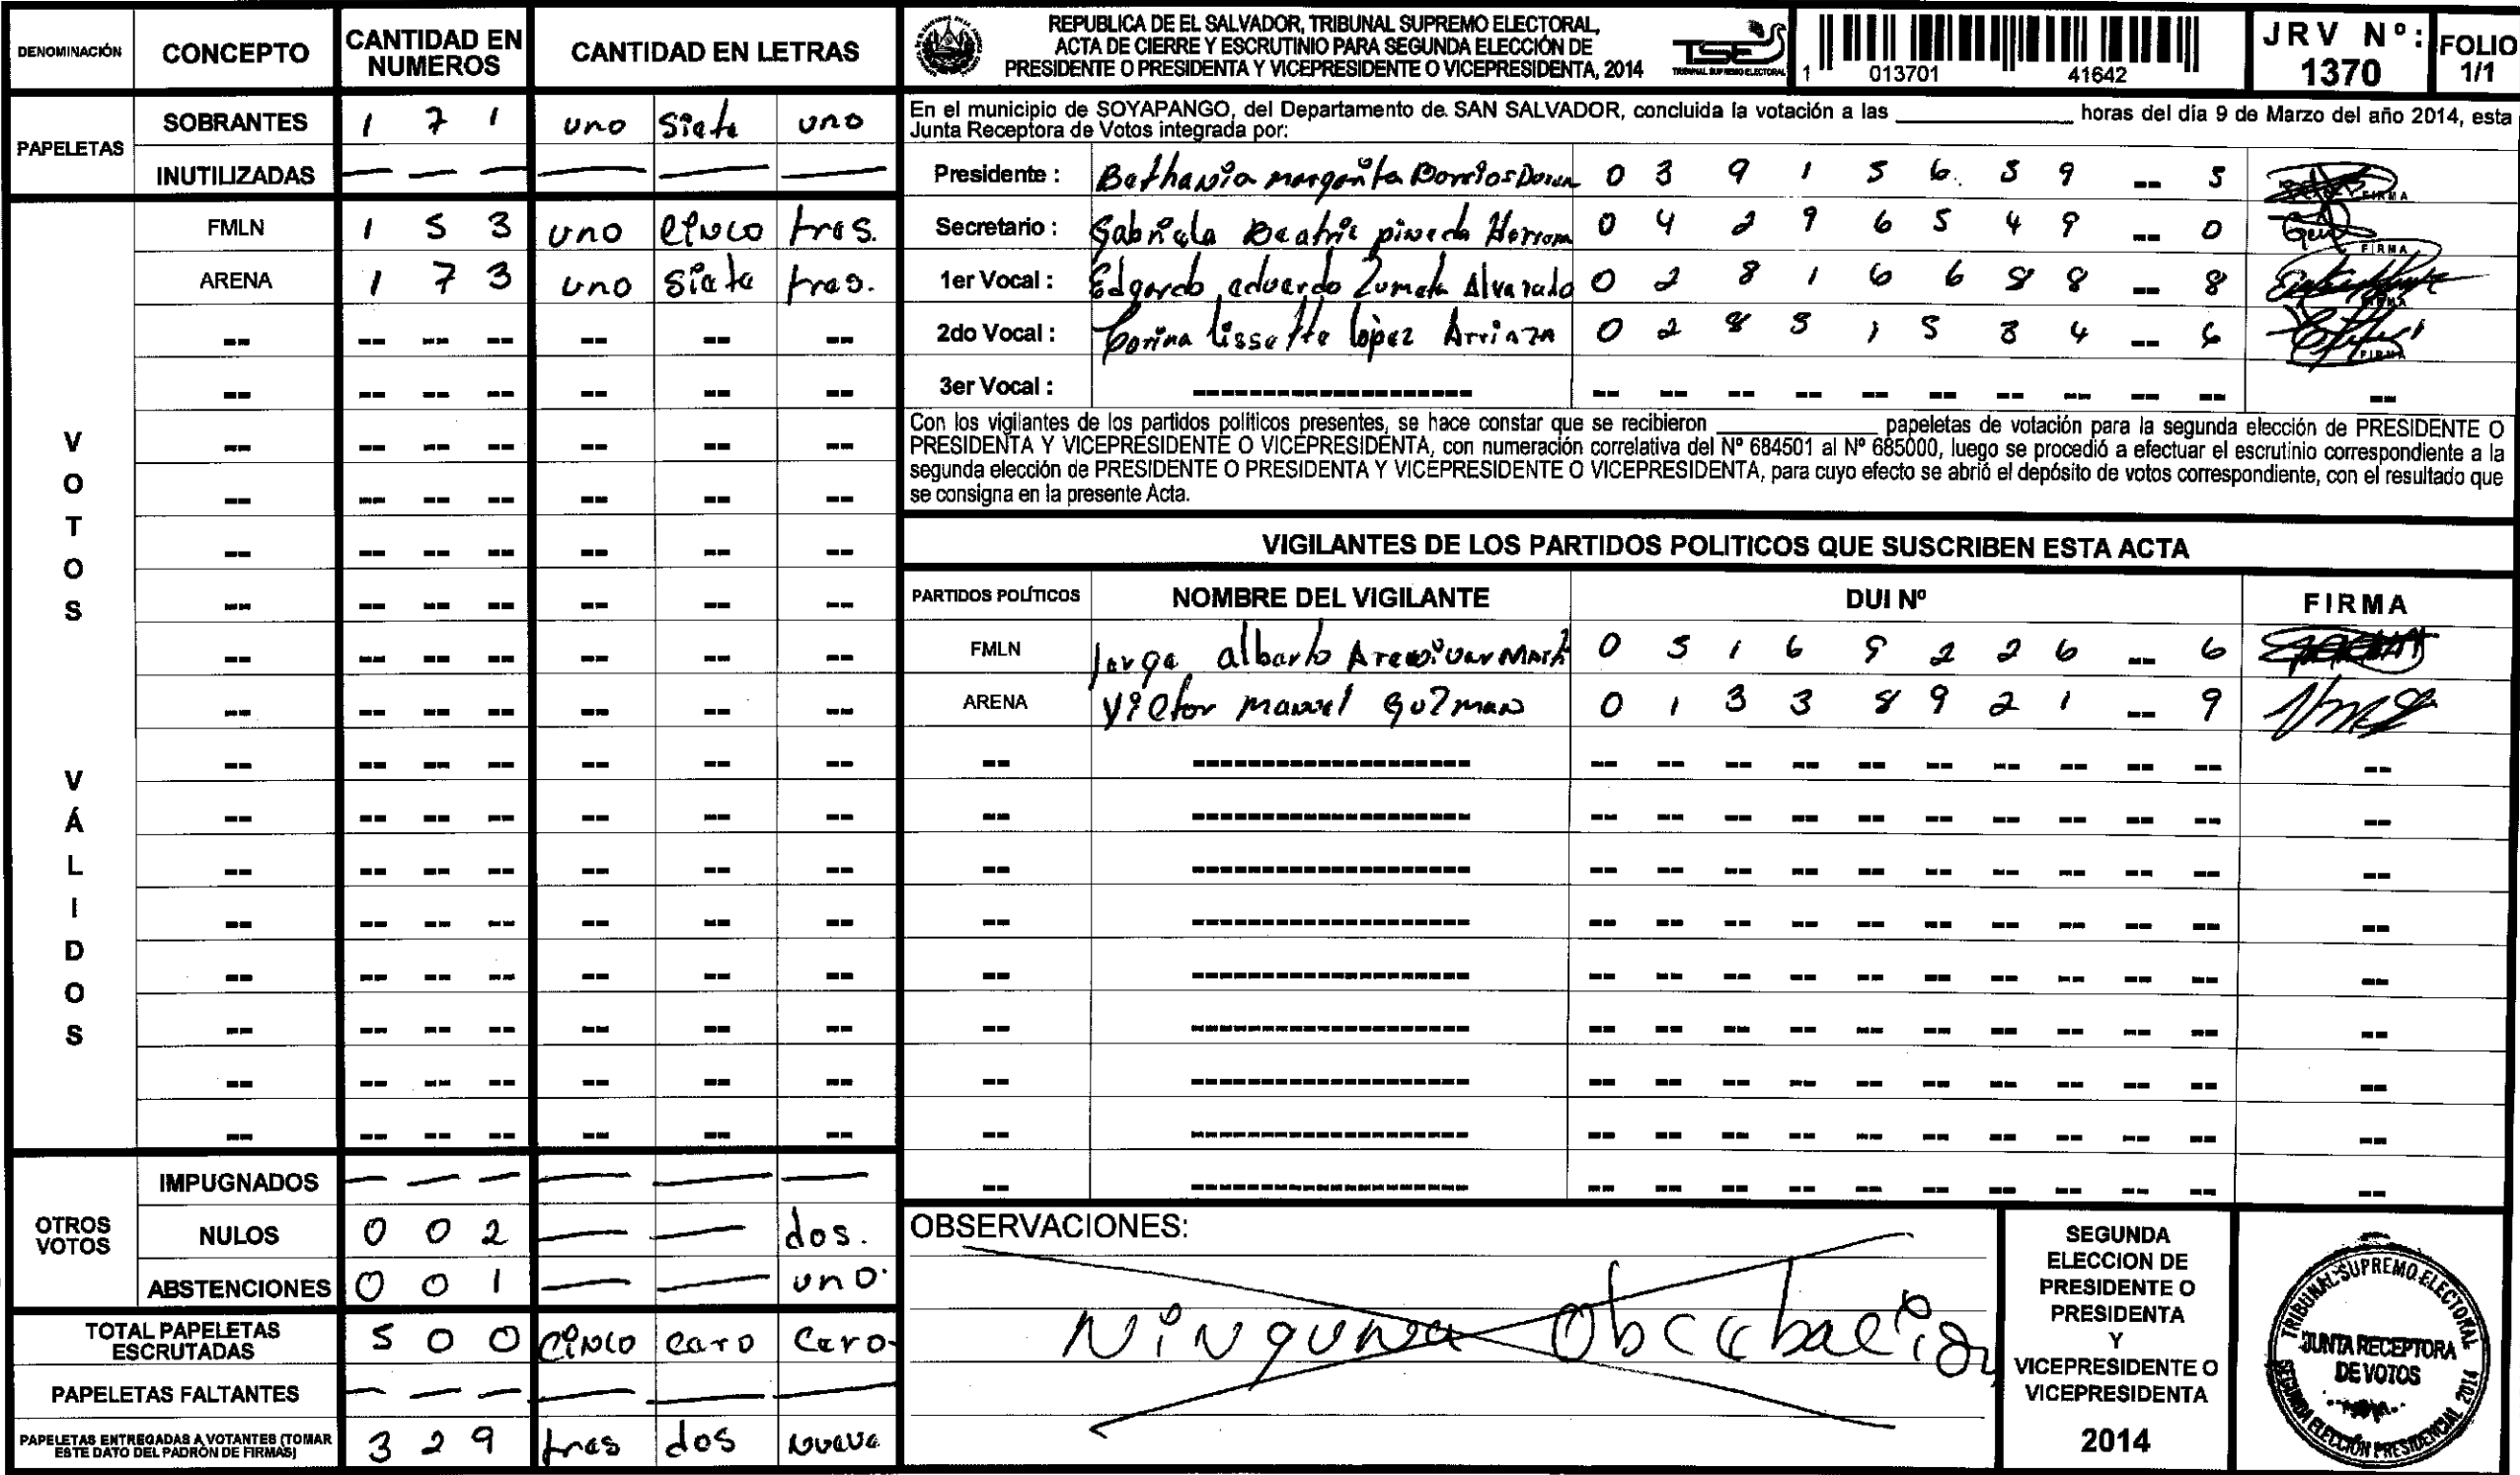 DENOMINACIÓN CONCEPTO CANTIDAD EN NUMEROS CANTIDAD EN LETRAS
PAPELETAS
SOBRANTES 1 7 1 uno siete uno
INUTILIZADAS — — — — — —
VOTOS VÁLIDOS
FMLN 1 5 3 uno cinco tres.
ARENA 1 7 3 uno siete tres.
OTROS VOTOS
IMPUGNADOS — — — — — —
NULOS 0 0 2 — — dos.
ABSTENCIONES 0 0 1 — — uno.
TOTAL PAPELETAS ESCRUTADAS 5 0 0 cinco cero cero
PAPELETAS FALTANTES — — — — — —
PAPELETAS ENTREGADAS A VOTANTES (TOMAR ESTE DATO DEL PADRÓN DE FIRMAS) 3 2 9 tres dos nueve
REPUBLICA DE EL SALVADOR, TRIBUNAL SUPREMO ELECTORAL,
ACTA DE CIERRE Y ESCRUTINIO PARA SEGUNDA ELECCIÓN DE
PRESIDENTE O PRESIDENTA Y VICEPRESIDENTE O VICEPRESIDENTA, 2014
TSE
TRIBUNAL SUPREMO ELECTORAL
1 013701 41642
JRV Nº: 1370
FOLIO 1/1
En el municipio de SOYAPANGO, del Departamento de SAN SALVADOR, concluida la votación a las ____ horas del día 9 de Marzo del año 2014, esta
Junta Receptora de Votos integrada por:
Presidente : Bethania margarita Barrios 0 3 9 1 5 6 3 9 -- 5 FIRMA
Secretario : Gabriela Beatriz pineda 0 4 2 9 6 5 4 9 -- 0 FIRMA
1er Vocal : Edgardo eduardo Zumeta Alvarado 0 2 8 1 6 6 8 8 -- 8 FIRMA
2do Vocal : lissette lopez Arriaza 0 2 8 5 1 5 3 4 -- 6 FIRMA
3er Vocal :
Con los vigilantes de los partidos políticos presentes, se hace constar que se recibieron ____ papeletas de votación para la segunda elección de PRESIDENTE O
PRESIDENTA Y VICEPRESIDENTE O VICEPRESIDENTA, con numeración correlativa del Nº 684501 al Nº 685000, luego se procedió a efectuar el escrutinio correspondiente a la
segunda elección de PRESIDENTE O PRESIDENTA Y VICEPRESIDENTE O VICEPRESIDENTA, para cuyo efecto se abrió el depósito de votos correspondiente, con el resultado que
se consigna en la presente Acta.
VIGILANTES DE LOS PARTIDOS POLITICOS QUE SUSCRIBEN ESTA ACTA
PARTIDOS POLÍTICOS NOMBRE DEL VIGILANTE DUI Nº FIRMA
FMLN Jorge alberto 0 5 1 6 9 2 2 6 -- 6
ARENA Victor manuel guzman 0 1 3 3 8 9 2 1 -- 9
OBSERVACIONES:
Ninguna
SEGUNDA
ELECCION DE
PRESIDENTE O
PRESIDENTA
Y
VICEPRESIDENTE O
VICEPRESIDENTA
2014
TRIBUNAL SUPREMO ELECTORAL
JUNTA RECEPTORA
DE VOTOS
SEGUNDA ELECCIÓN PRESIDENCIAL 2014